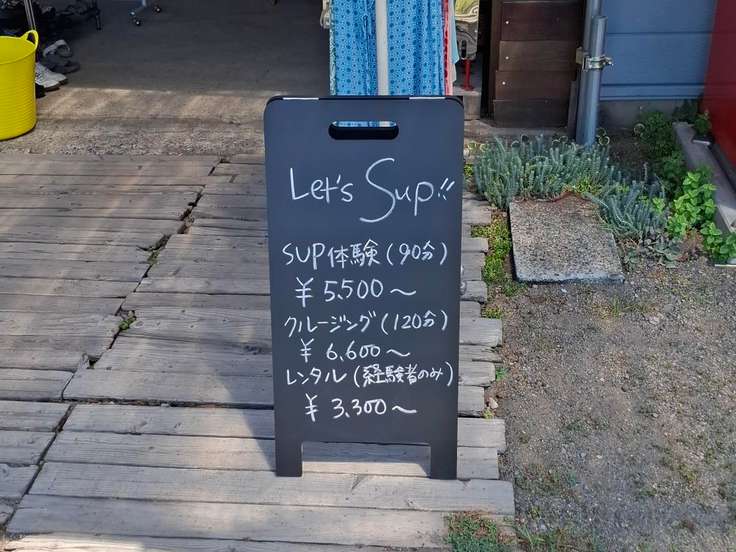 Let's Sup!!
SUP体験(90分)
¥5,500〜
クルージング(120分)
¥6,600〜
レンタル(経験者のみ)
¥3,300〜